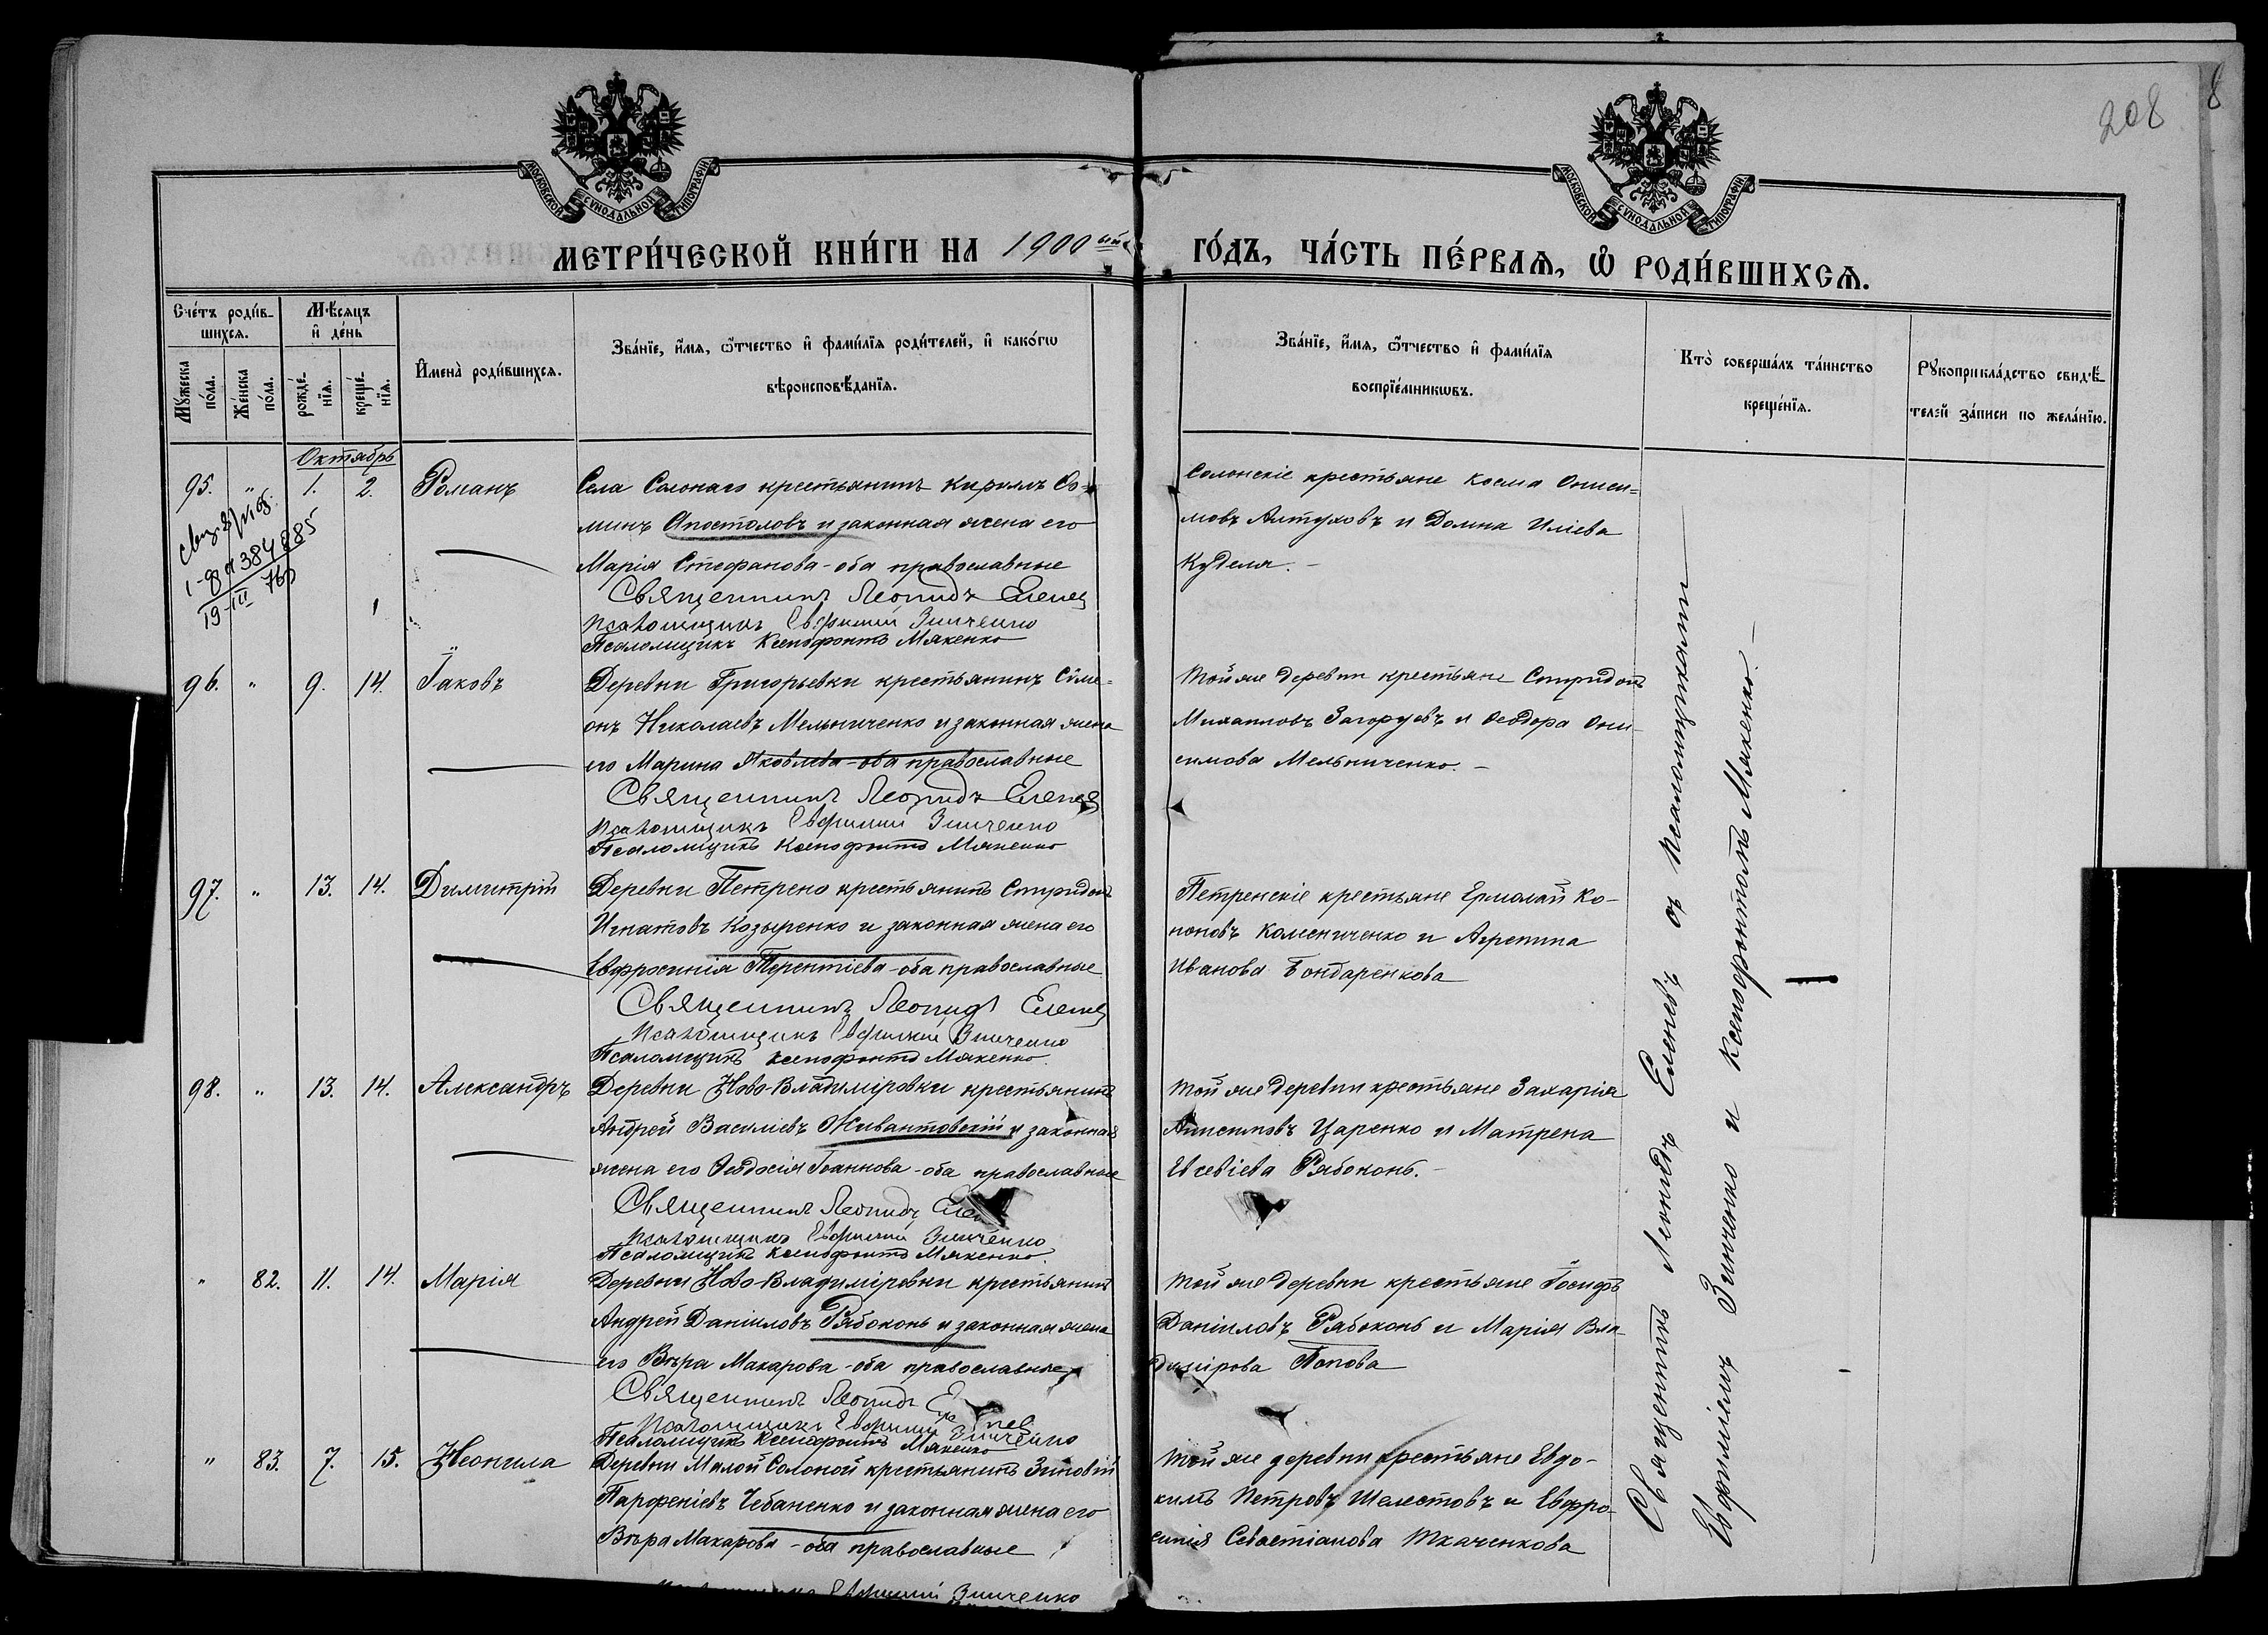 208
8
МОСКОВСКОЙ СѴНОДАЛЬНОЙ ТИПОГРАФІИ
МОСКОВСКОЙ СѴНОДАЛЬНОЙ ТИПОГРАФІИ
МЕТРИ́ЧЕСКОЙ КНИ́ГИ НА 1900 ый
ГО́ДЪ, ЧА́СТЬ ПЕ́РВАѦ, Ѡ РОДИ́ВШИХСѦ.
Сче́тъ роди́в-
шихся.
Мѣ́сяцъ
и де́нь
Му́жеска по́ла.
Же́нска по́ла.
рожде́-
нїя.
креще́-
нїя.
Имена̀ роди́вшихся.
Зва́нїе, и́мя, ѻ́тчество и фами́лїя роди́телей, и како́гѡ
вѣроисповѣ́данїя.
Зва́нїе, и́мя, ѻ́тчество и фами́лїя
воспрїе́мникѡвъ.
Кто̀ соверша́лъ та́инство
креще́нїя.
Рꙋкоприкла́дство свидѣ́-
телей за́писи по жела́нїю.
Октябрь
95. " 1. 2. Романъ
Села Солонаго крестьянинъ Кириллъ Ѳо-
минъ Апостоловъ и законная жена его
Марія Стефанова - оба православные
Священникъ Леонидъ Еленев
Псаломщикъ Евфимий Зинченко
Псаломщикъ Ксенофонтъ Мякенко
Солонскіе крестьяне КосмаОниси-
мовъ Алтуховъ и Домна Иліева
Куделя. -
384885
19-III 76
96. " 9. 14. Іаковъ
Деревни Григорьевки крестьянинъ Сѵме-
онъ Николаевъ Мельниченко и законная жена
его Марина Яковлева - оба православные
Священникъ Леонидъ Еленев
Псаломщикъ Евфимий Зинченко
Псаломщикъ Ксенофонтъ Мякенко
Той же деревни крестьяне Спиридонъ
Михаиловъ Загоруевъ и Ѳеодора Они-
симова Мельниченко. -
97. " 13. 14. Димитрій
Деревни Петрено крестьянинъ Спиридонъ
Игнатовъ Козыренко и законная жена его
Евфросинія Терентіева - оба православные
Священникъ Леонидъ Еленев
Псаломщикъ Евфимий Зинченко
Псаломщикъ Ксенофонтъ Мякенко.
Петренскіе крестьяне Ермолай Ко-
ноновъ Комениченко и Агрепина
Иванова Бондаренкова
98. " 13. 14. Александръ
Деревни Ново-Владиміровки крестьянинъ
Андрей Василіевъ Живантовскій и законная
жена его Ѳеодосія Іоаннова - оба православные
Священникъ Леонидъ Елен
Псаломщикъ Евфимий Зинченко
Псаломщикъ Ксенофонтъ Мякенко.
Той же деревни крестьяне Захарія
Анисимовъ Царенко и Матрена
Евсевіева Рябоконь. -
" 82. 11. 14. Марія
Деревни Ново-Владиміровки крестьянинъ
Андрей Даніиловъ Рябоконь и законная жена
его Вѣра Макарова - оба православные
Священникъ Леонидъ Еленев
Псаломщикъ Евфимий Зинченко
Псаломщикъ Ксенофонтъ Мякенко
Той же деревни крестьяне Іосифъ
Даніиловъ Рябоконь и Марія Вла-
димірова Попова
" 83. 7. 15. Неонила
Деревни Малой Солоной крестьянинъ Зиновій
Парфеніевъ Чебаненко и законная жена его
Вѣра Макарова - оба православные
Евфимий Зинченко
Той же деревни крестьяне Евдо-
кимъ Петровъ Шелестовъ и Евфро-
синія Севастіанова Ткаченкова
Священникъ Леонидъ Еленевъ съ псаломщиками
Евфиміемъ Зинченко и Ксенофонтомъ Мякенко. -